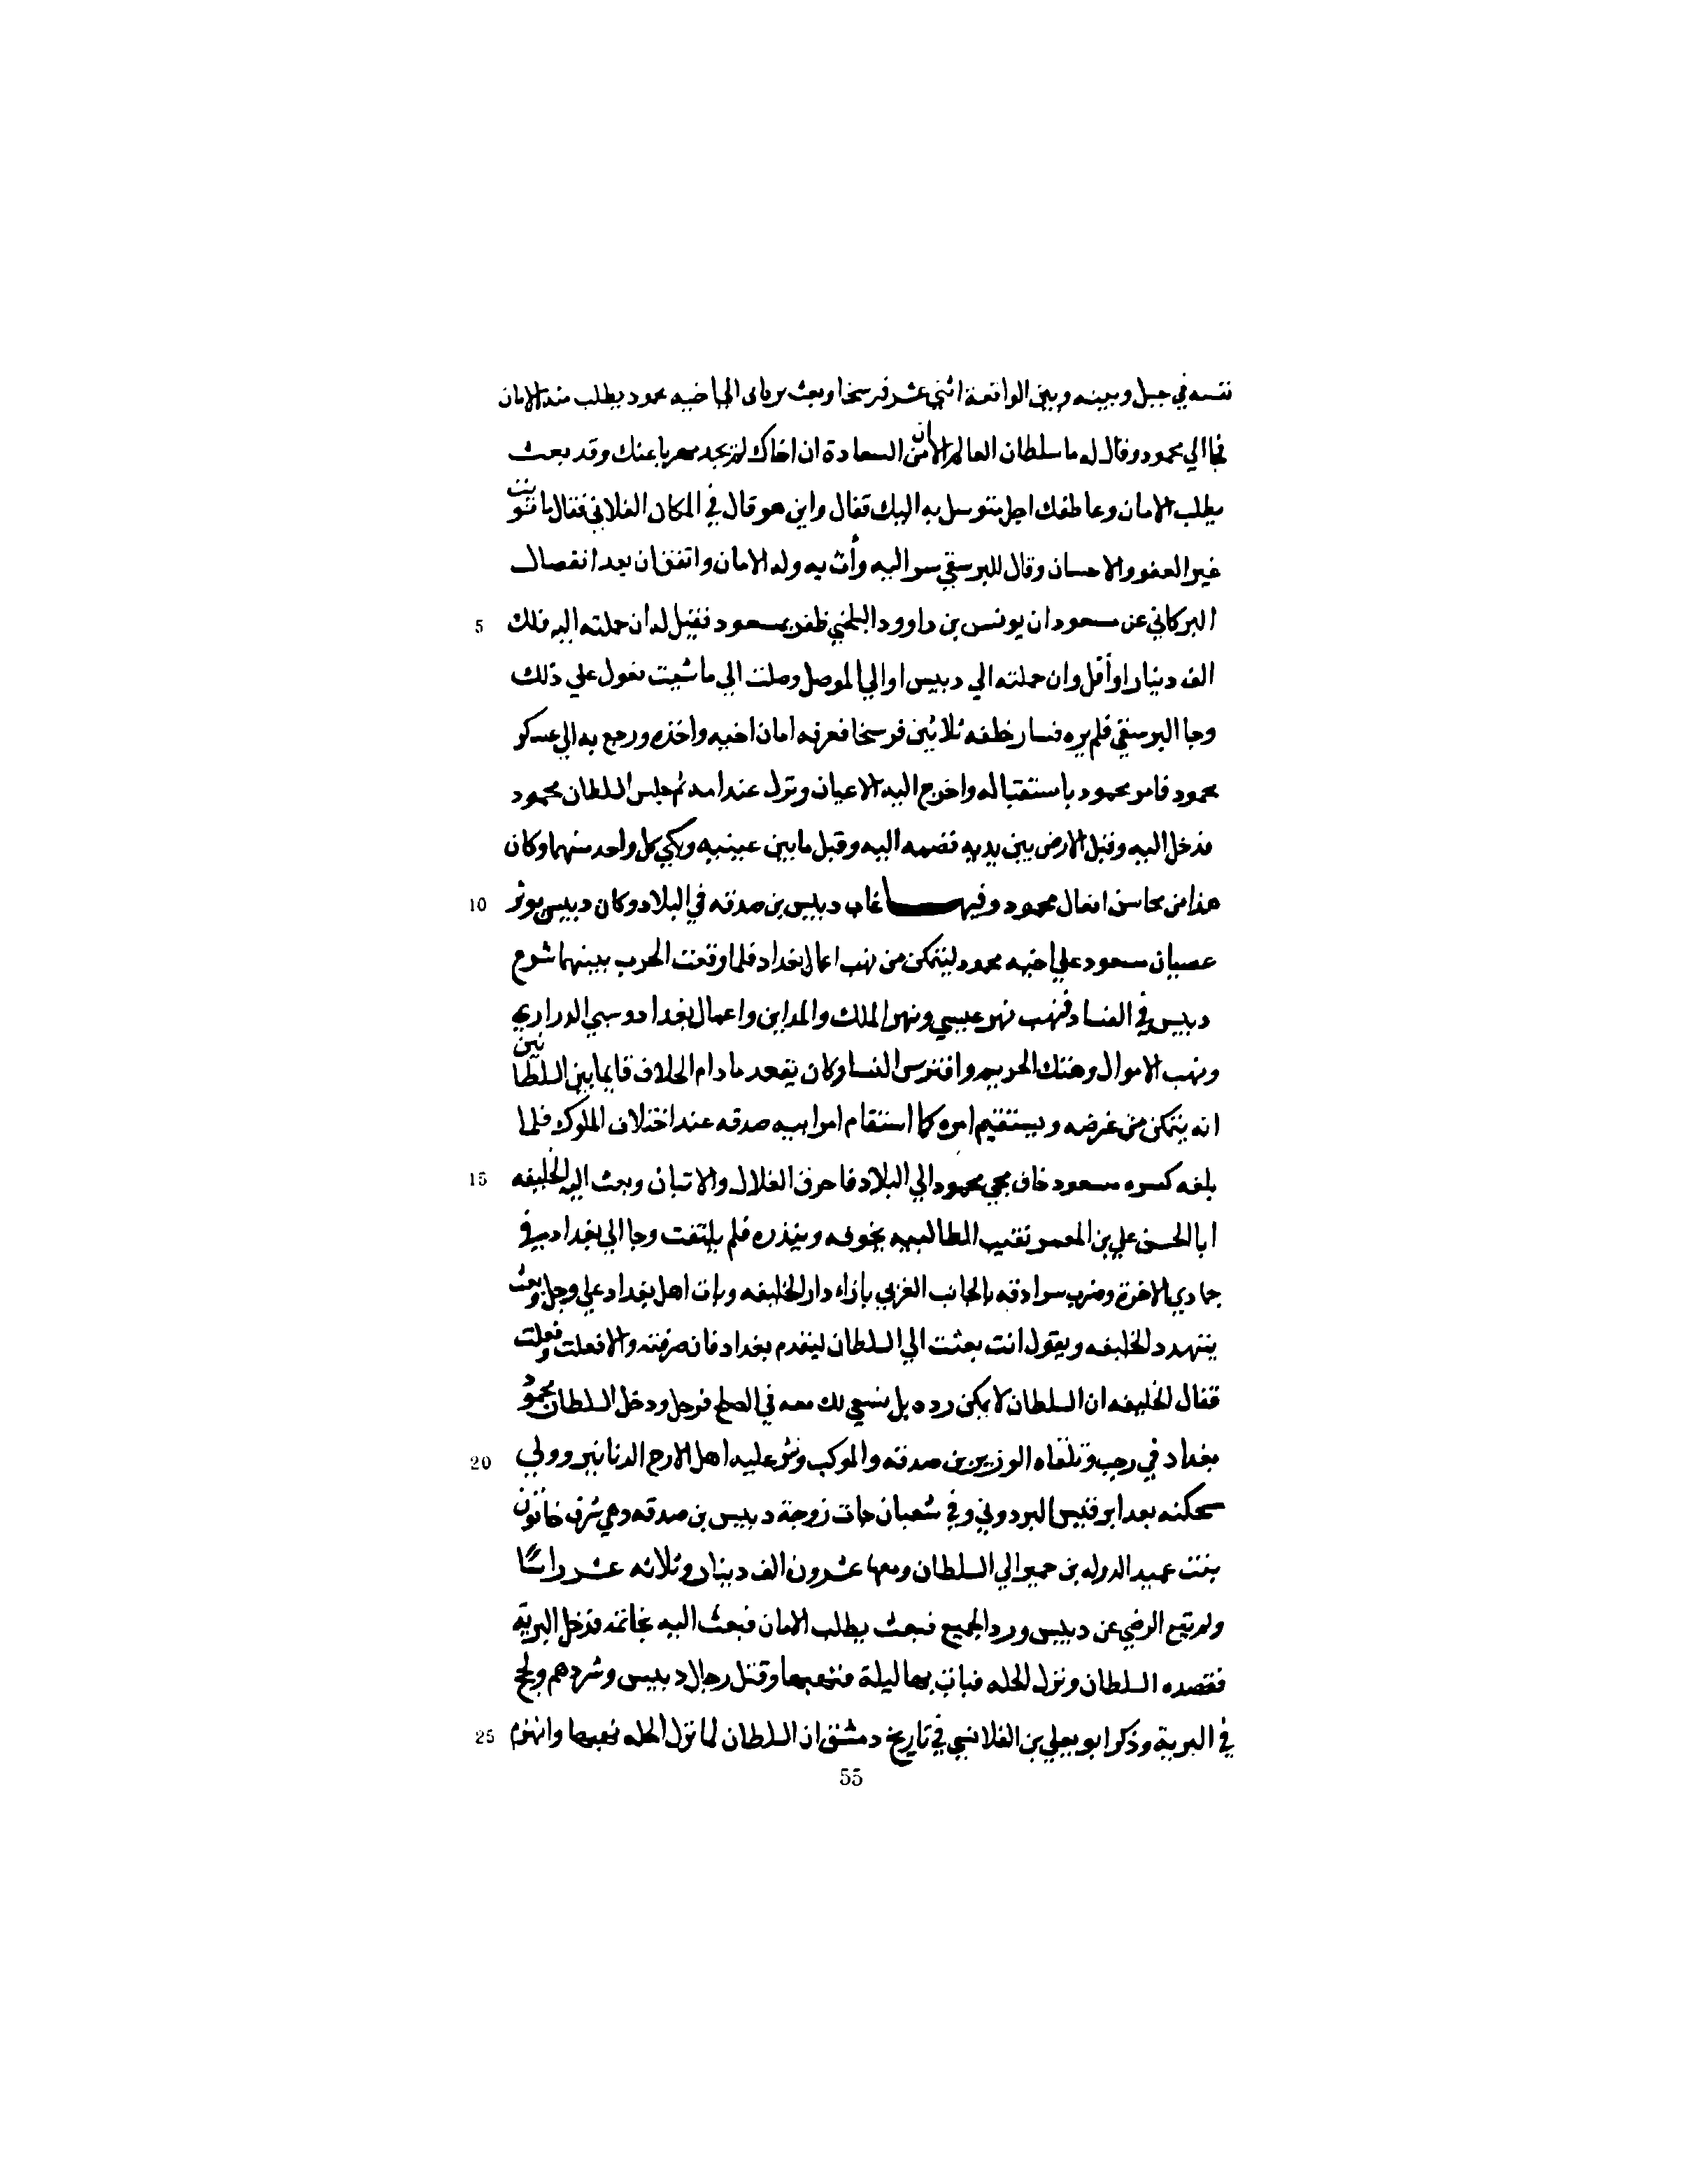 نفسه في جبل وبينه وبين الواقعة اثني عشر فرسخا وبعث الي اخيه محمود يطلب منه الامان
فجا الي محمود وقال له ما سلطان العالم ان من السعادة ان اخاك لم يجد مهربا عنك وقد بعث
يطلب الامان وعاطفك اجل متوسل به اليك فقال واين هو قال في المكان الفلاني فقال ما نويت
غير العفو والاحسان وقال للبرسقي سر اليه وأت به وله الامان واتفق ان بعد انفصال
5 البركاني عن مسعود ان يونس بن داوود البلخي ظفر بمسعود فقيل له ان حملته اليه فلك
الف دينار او أقل وان حملته الي دبيس او الي الموصل وصلت الي ما شيت فعول علي ذلك
وجا البرسقي فلم يره فسار خلفه ثلاثين فرسخا فعرفه امان اخيه واخذه ورجع به الي عسكر
محمود فامر محمود باستقباله واخرج اليه الاعيان ونزل عند امه ثم جلس السلطان محمود
فدخل اليه وقبل الارض بين يديه فضمه اليه وقبل ما بين عينيه وبكي كل واحد منهما وكان
10 هذا من محاسن افعال محمود وفيها عاب دبيس بن صدقه في البلاد وكان دبيس يوثر
عصيان مسعود علي اخيه محمود ليتمكن من نهب اعمال بغداد فلما وقعت الحرب بينهما شرع
دبيس في الفساد فنهب نهر عيسي ونهر الملك والمداين واعمال بغداد وسبي الدراري
ونهب الاموال وهتك الحريم وافترس النسا وكان يقصد ما دام الخلاف قايما بين السلطانين
انه يتمكن من غرضه ويستقيم امره كما استقام امر ابيه صدقه عند اختلاف الملوك فلما
15 بلغه كسره مسعود خاف مجي محمود الي البلاد فاحرق الغلال والاتبان وبعث اليه الخليفه
ابا الحسن علي بن المعمر نقيب الطالبيه يخوفه وينذره فلم يلتفت وجا الي بغداد في
جمادي الاخرة وضرب سرادقه بالجانب الغربي بازاء دار الخليفه وبات اهل بغداد علي وجل وبعث
يتهدد الخليفه ويقول انت بعثت الي السلطان ليقدم بغداد فان صرفته والا فعلت وفعلت
فقال الخليفه ان السلطان لا يمكن رده بل نسعي لك معه في الصلح فرحل ودخل السلطان محمود
20 بغداد في رجب وتلقاه الوزير بن صدقه والموكب ونثر عليه اهل الارج الدنانير وولي
شحكنه بعد ابو قيس البردوني وفي شعبان جات زوجة دبيس بن صدقه وهي شرف خاتون
بنت عميد الدوله بن جهير الي السلطان ومعها عشرون الف دينار وثلاثه عشر راسًا
ولم تقع الرضي عن دبيس ورد الجميع فبعث يطلب الامان فبعث اليه بخاتمه فدخل البرية
فقصده السلطان ونزل الحله فبات بها ليلة فنهبها وقتل رجال دبيس وشردهم ولج
25 في البرية وذكر ابو يعلي بن القلانسي في تاريخ دمشق ان السلطان لما نزل الحله نهبها وانهزم
55